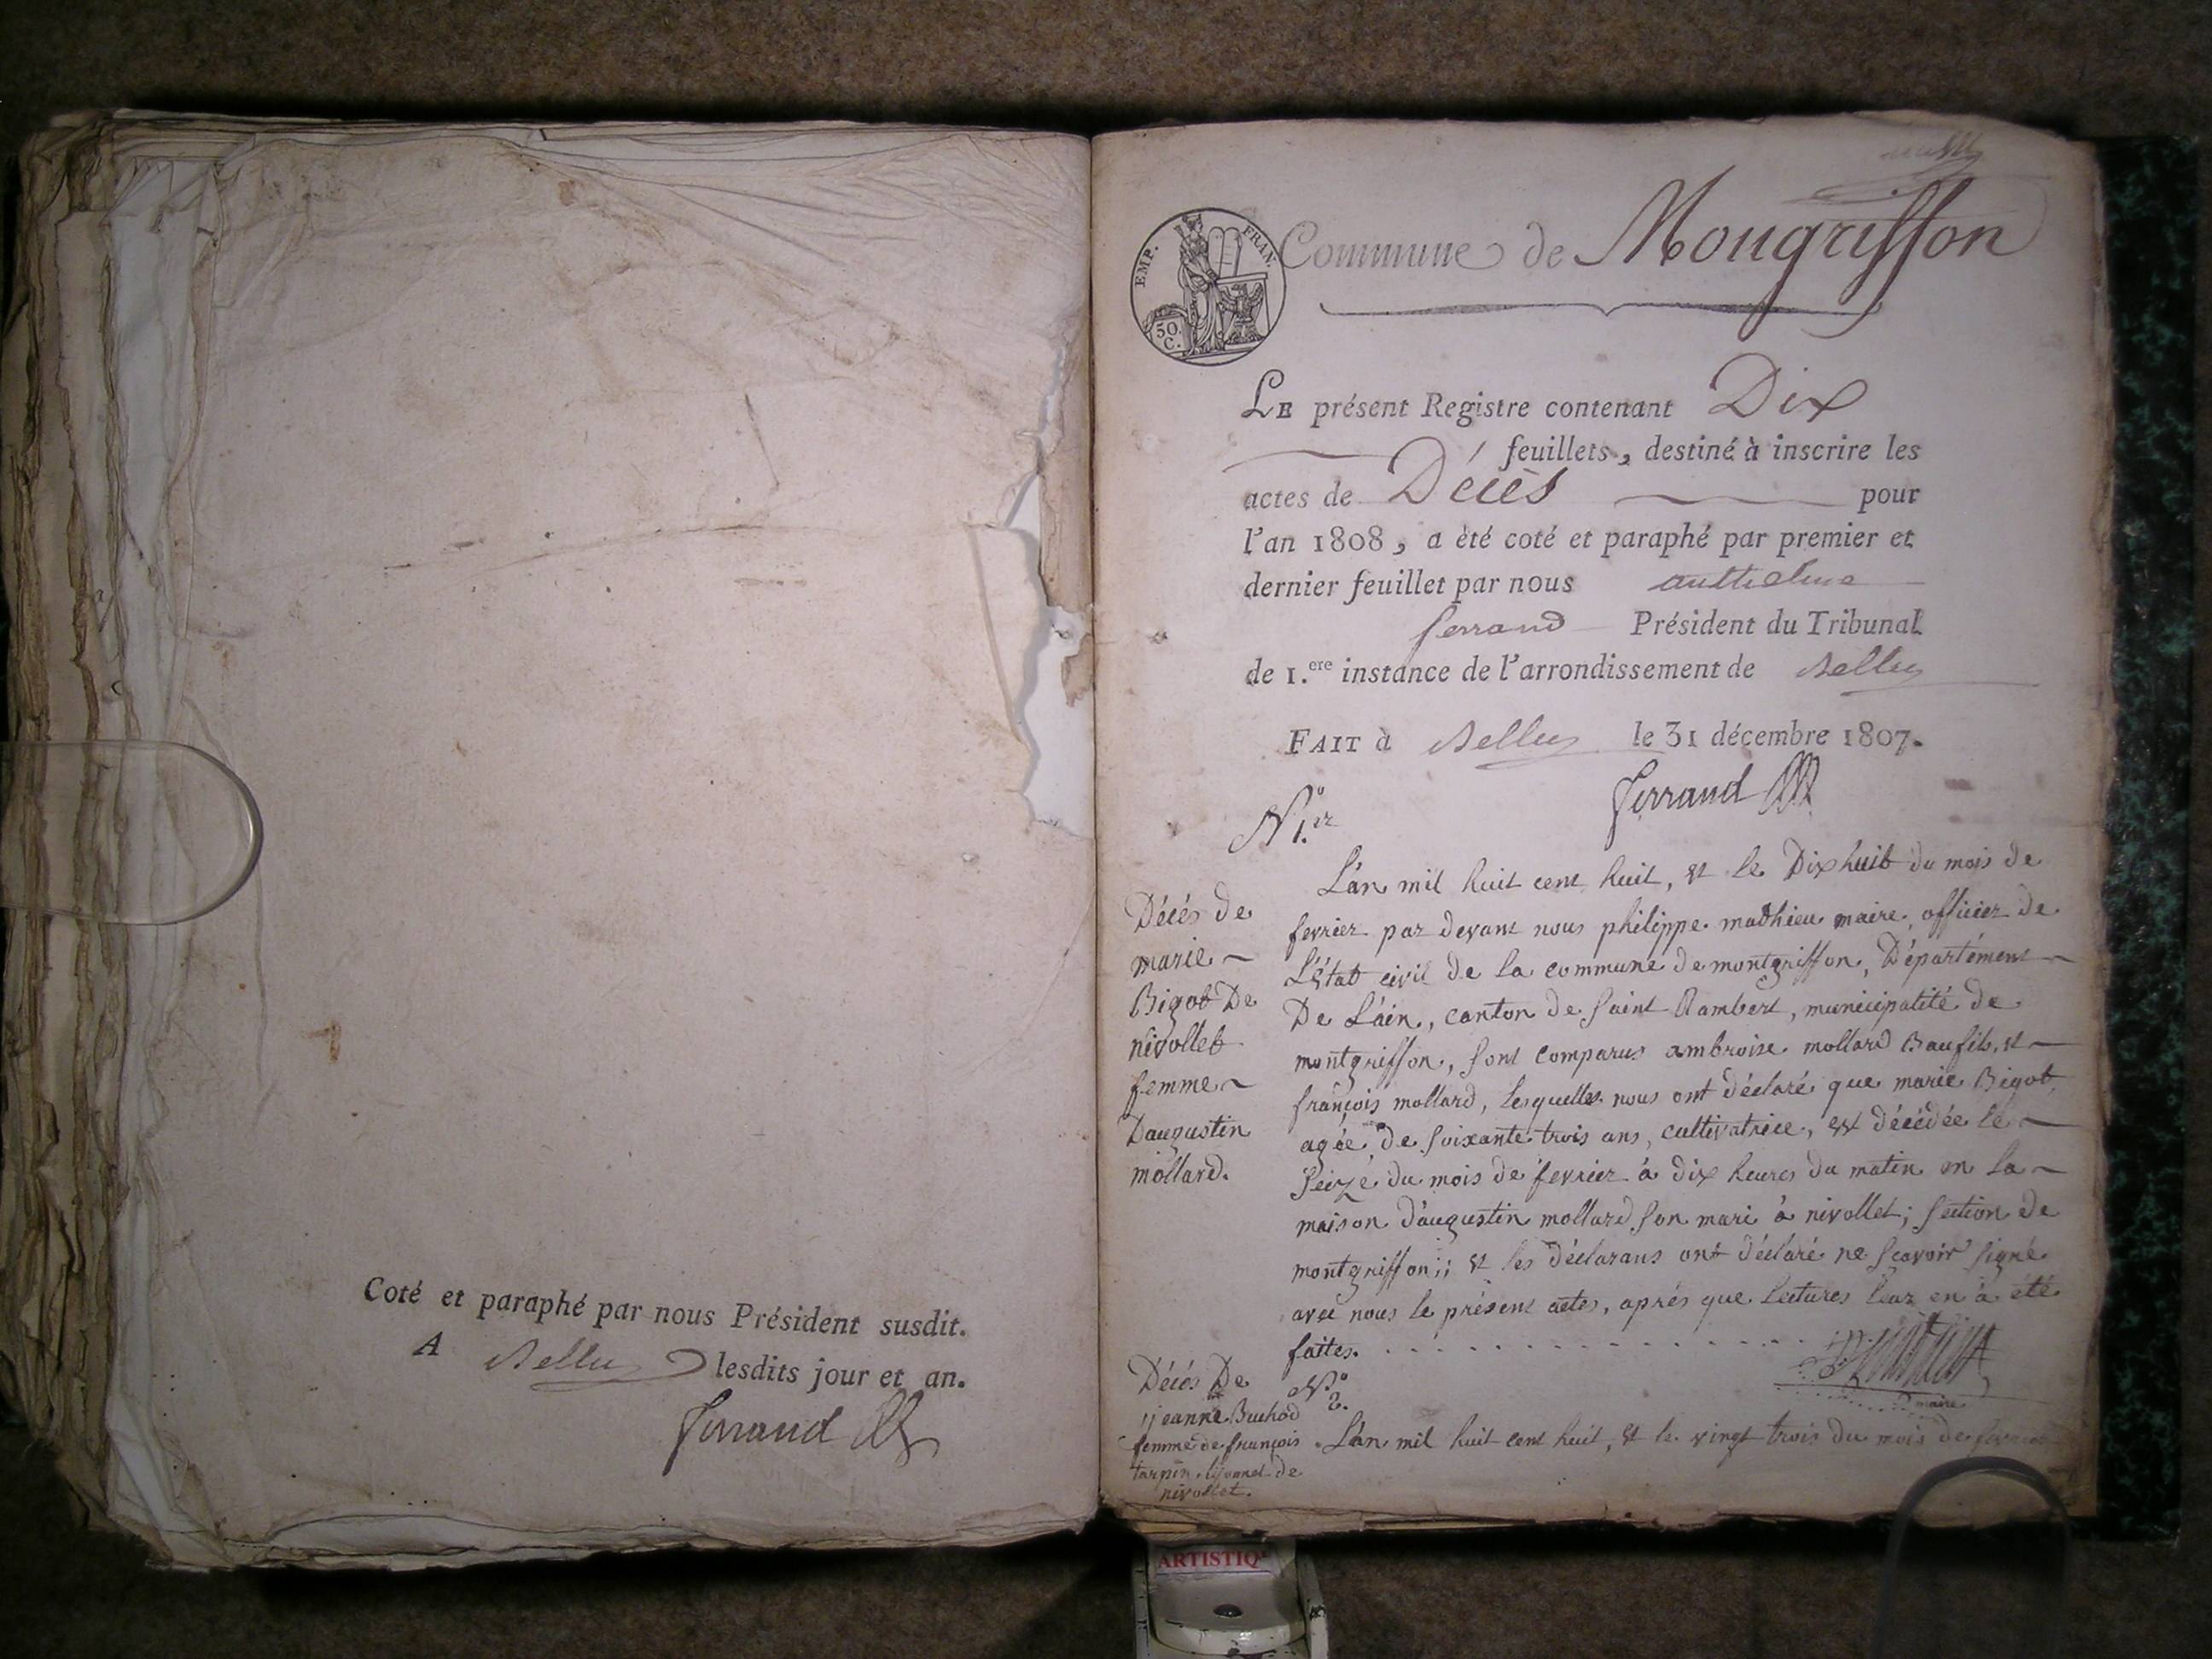 Coté et paraphé par nous Président susdit.
A Belley lesdits jour et an.
Ferrand
EMP. FRAN.
50. C.
Commune de Mongriffon
LE présent Registre contenant Dix
feuillets, destiné à inscrire les
actes de Décès pour
l'an 1808, a été coté et paraphé par premier et
dernier feuillet par nous anthelme
ferrand Président du Tribunal
de 1.ere instance de l'arrondissement de Belley
FAIT à Belley le 31 décembre 1807.
Ferrand
N.o 1.er
Décés de
marie
Bigot De
nivollet
femme
Daugustin
mollard.
L'an mil huit cent huit, et le Dix huit du mois de
fevrier par devant nous philippe mathieu maire, officier de
L'État civil de la commune de montgriffon, Département
De L'ain, canton de Saint Rambert, municipalité de
montgriffon, sont comparus ambroise mollard Baufils, et
françois mollard, lesquelles nous ont déclaré que marie Bigot,
agée de soixante trois ans, cultivatrice, est décédée le
seize du mois de fevrier à dix heures du matin en la
maison d'augustin mollard son mari à nivollet; section de
montgriffon; et les déclarans ont déclaré ne scavoir signé
avec nous le présent actes, aprés que lectures leur en à été
faites.
maire
Décés De
jeanne Buhod
femme de françois
tarpin lyonnet de
nivollet.
N.o 2.
L'an mil huit cent huit, et le vingt trois du mois de fevrier
ARTISTIQ